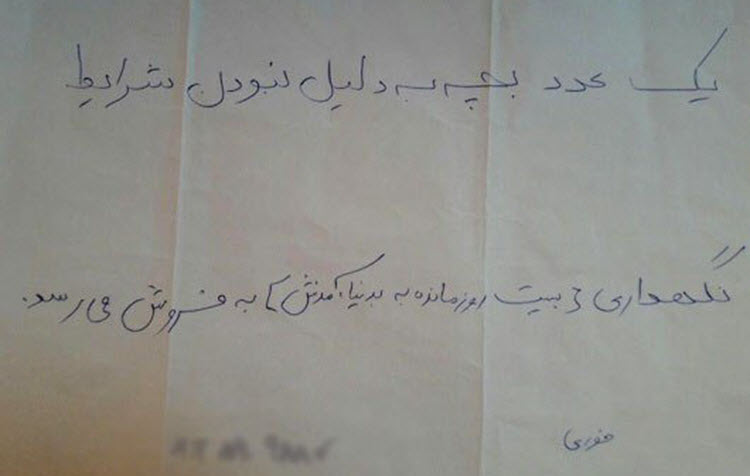 یک عدد بچه به دلیل نبودن شرایط
نگهداری و بیست روز مانده به بدنیا آمدنش به فروش می رسد.
فوری